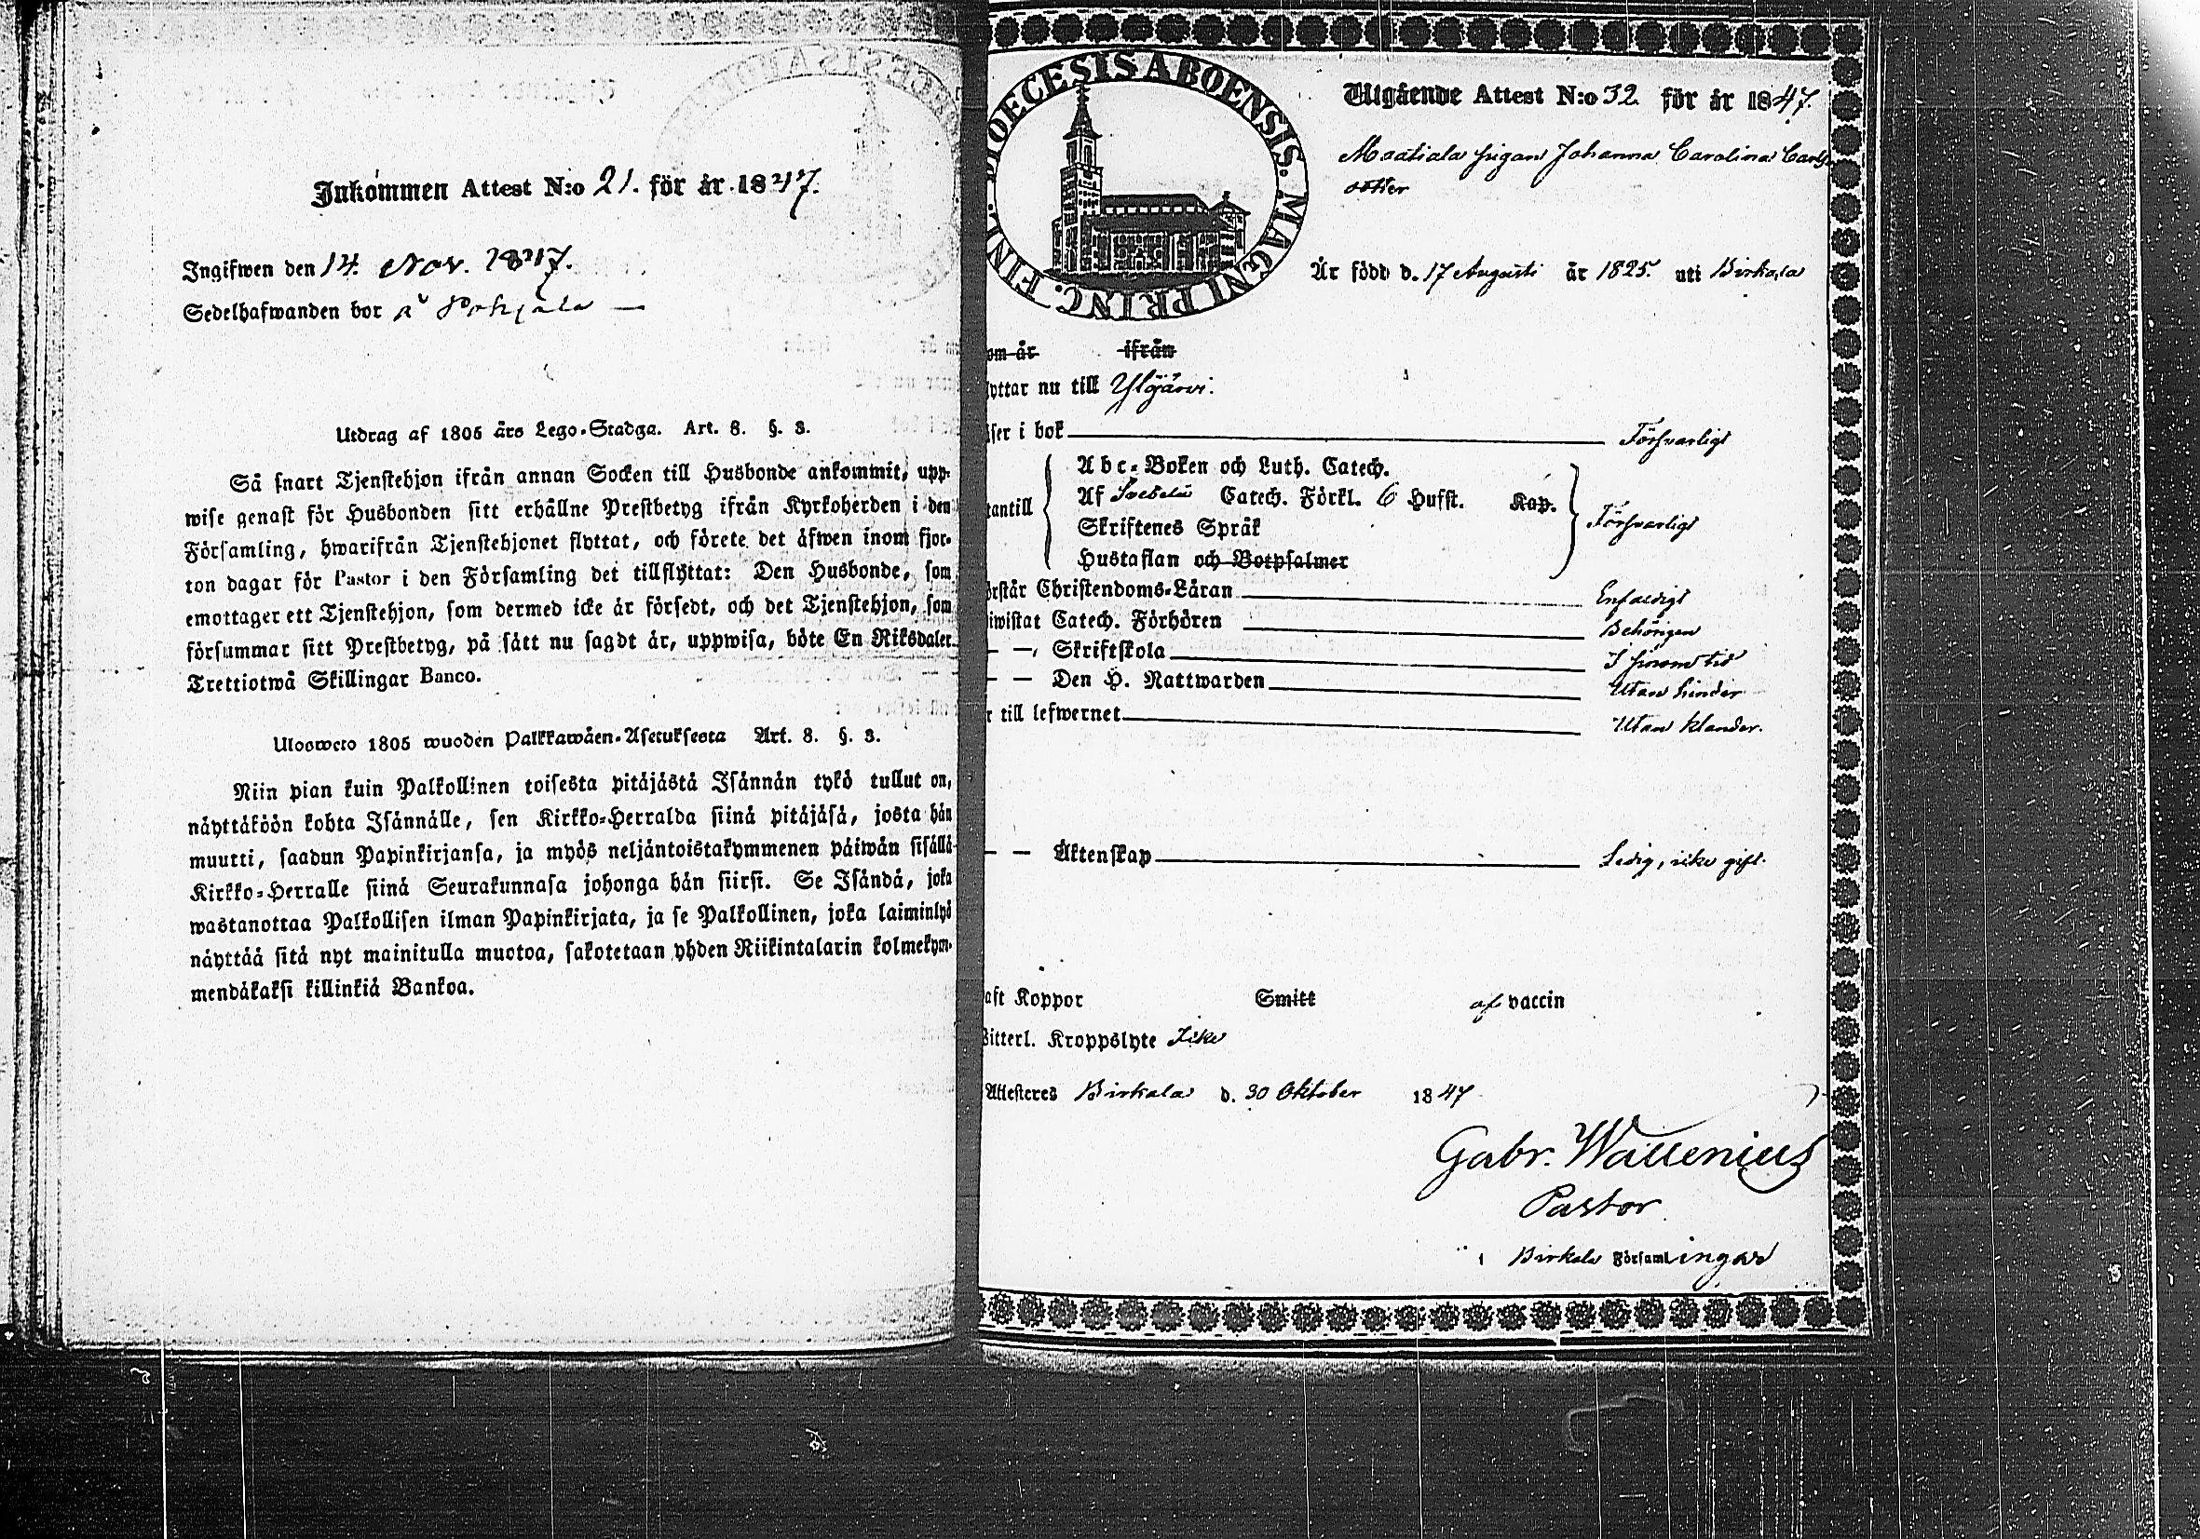 Inkommen Attest N:o 21. för år 1847.
Ingifwen den 14. Nov. 1847.
Sedelhafwanden bor å Pohjala —
Utdrag af 1805 års Lego-Stadga. Art. 8. §. 3.
Så snart Tjenstehjon ifrån annan Socken till Husbonde ankommit, upp-
wise genast för Husbonden sitt erhållne Prestbetyg ifrån Kyrkoherden i den
Församling, hwarifrån Tjenstehjonet flyttat, och förete det äfwen inom fjor-
ton dagar för Pastor i den Församling det tillflyttat: Den Husbonde, som
emottager ett Tjenstehjon, som dermed icke är försedt, och det Tjenstehjon, som
försummar sitt Prestbetyg, på sätt nu sagdt är, uppwisa, böte En Riksdaler
Trettiotwå Skillingar Banco.
Ulosweto 1805 wuoden Palkkawäen-Asetuksesta Art. 8. §. 3.
Niin pian kuin Palkollinen toisesta pitäjästä Isännän tykö tullut on,
näyttäköön kohta Isännälle, sen Kirkko-Herralda siinä pitäjäsä, josta hän
muutti, saadun Papinkirjansa, ja myös neljäntoistakymmenen päiwän sisällä
Kirkko-Herralle siinä Seurakunnasa johonga hän siirsi. Se Isändä, joka
wastanottaa Palkollisen ilman Papinkirjata, ja se Palkollinen, joka laiminlyö
näyttää sitä nyt mainitulla muotoa, sakotetaan yhden Riikintalarin kolmekym-
mendäkaksi killinkiä Bankoa.
DIOECESIS ABOENSIS. MAGNI PRINC. FINL.
Utgående Attest N:o 32. för år 1847.
Maatiala pigan Johanna Carolina Carls
dotter
Är född d. 17 Augusti år 1825. uti Birkala
om år ifrån
lyttar nu till Ylöjärvi.
äser i bok Försvarligt
Abc-Boken och Luth. Catech.
Af Svebelii Catech. Förkl. 6 Hufst. Kap.
tantill Försvarligt
Skriftenes Språk
Hustaflan och Botpsalmer
örstår Christendoms-Läran Enfaldigt
iwistat Catech. Förhören Behörigen
— —, Skriftskola I sinom tid
— — Den H. Nattwarden Utan hinder
r till lefwernet Utan klander.
— — Äktenskap Ledig, icke gift.
aft Koppor Smitt af vaccin
Witterl. Kroppslyte Icke
Attesteres Birkala d. 30 Oktober 1847
Gabr. Wallenius
Pastor
i Birkala Församlingar